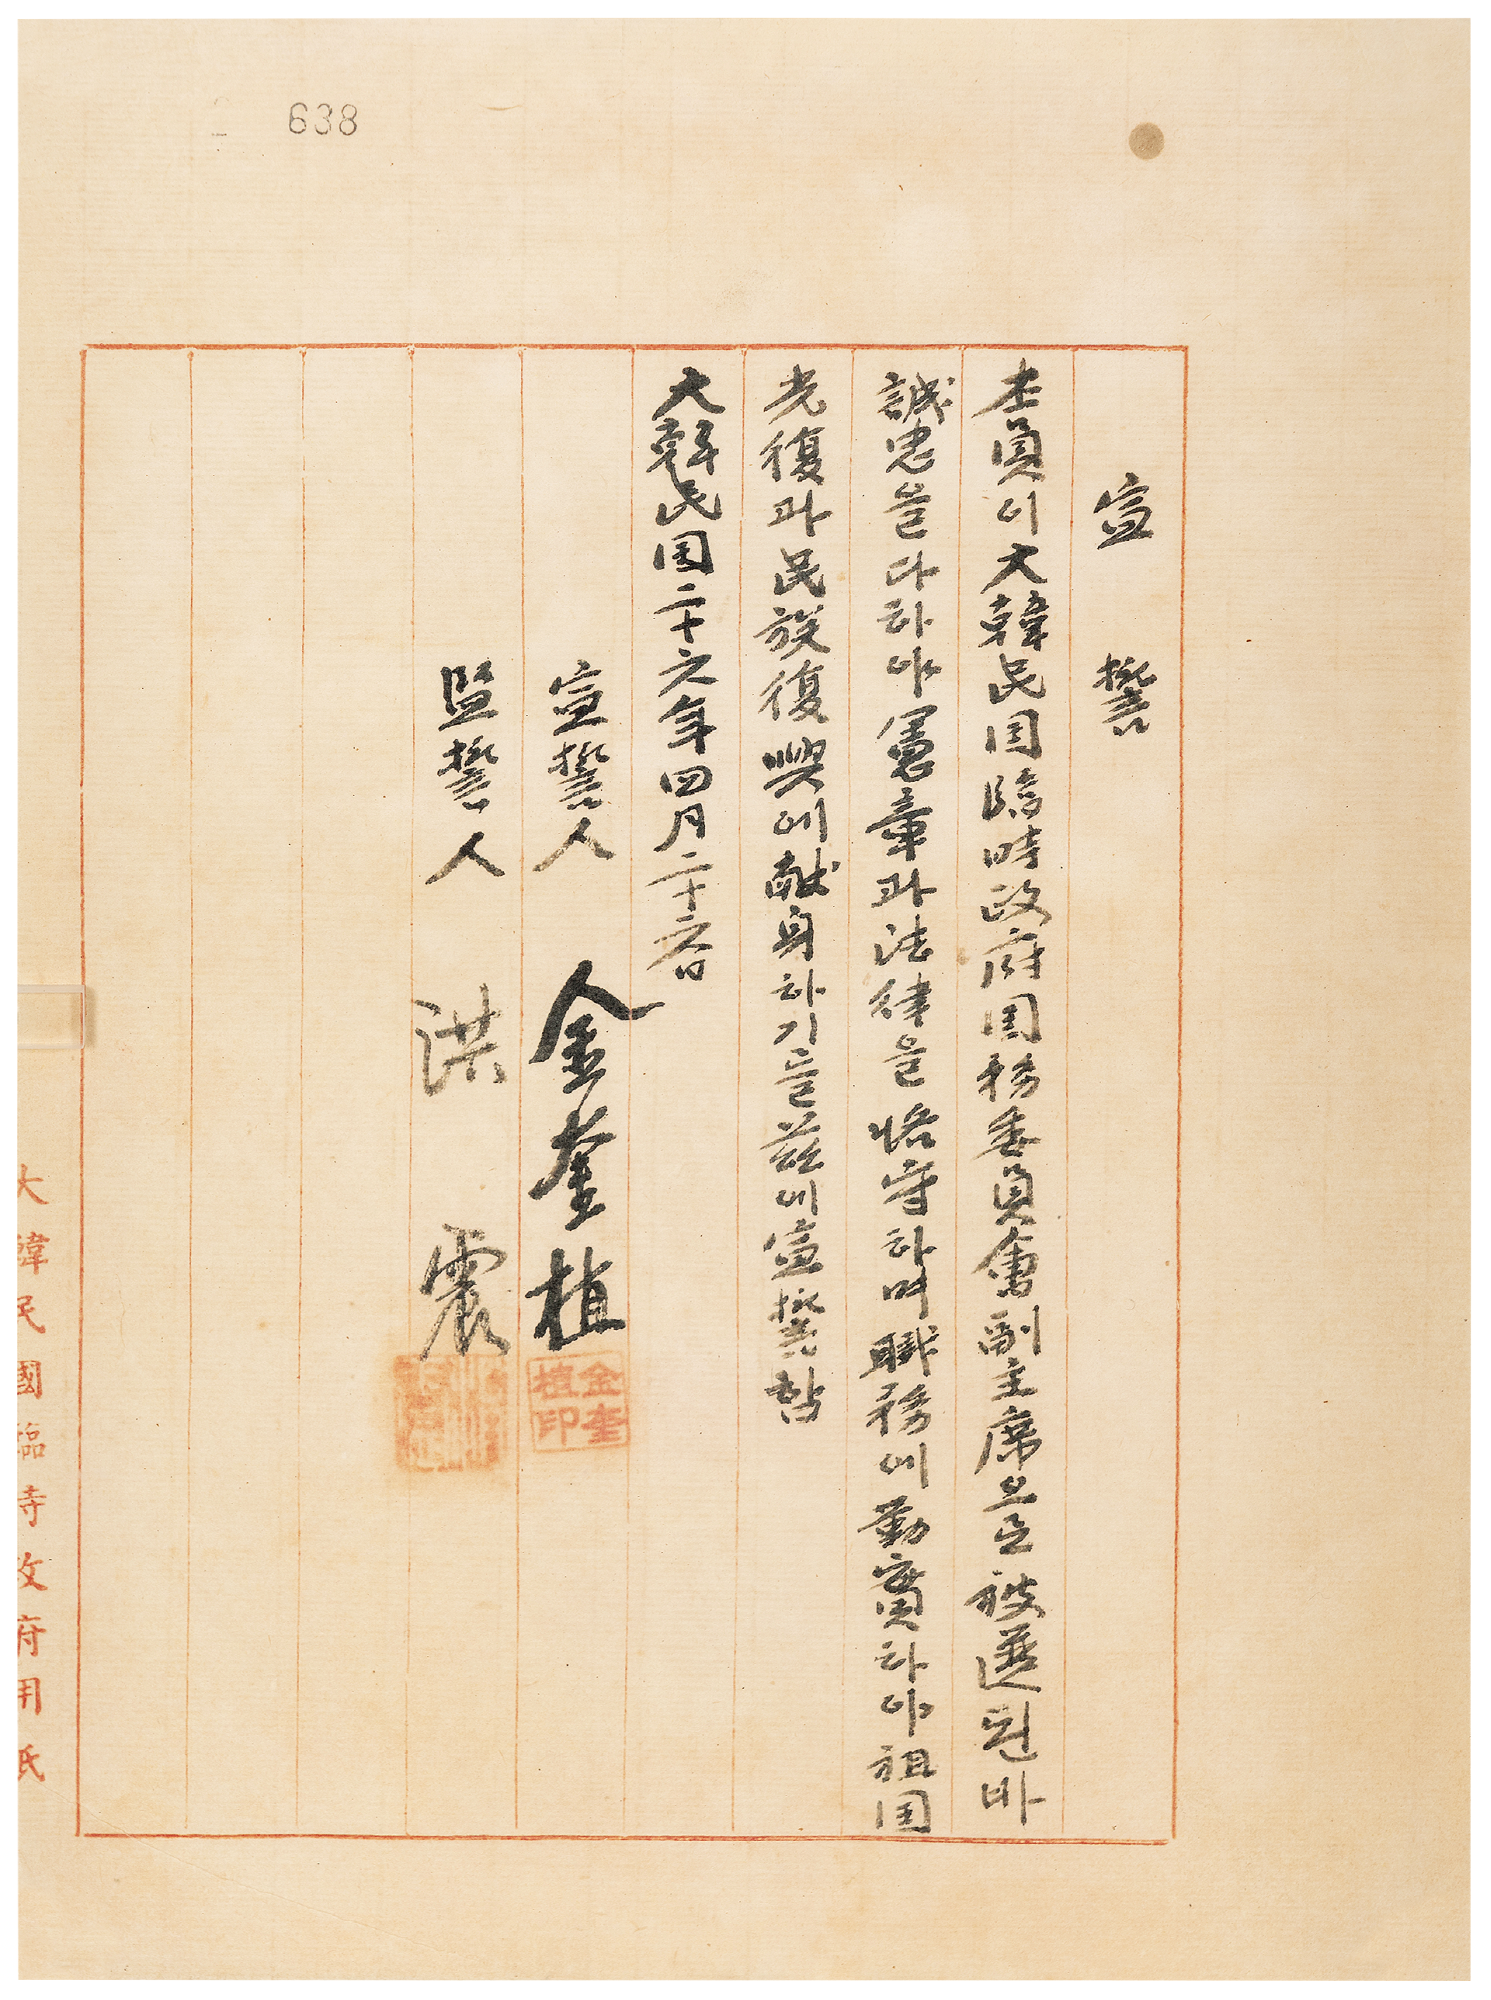 638
宣誓
本員이大韓民国臨時政府国務委員會副主席으로被選된바
誠忠을다하야憲章과法律을恪守하며職務에勤實하야祖国
光復과民族復興에献身하기를玆에宣誓함
大韓民国二十六年四月二十六日
宣誓人 金奎植
金奎植印
監誓人 洪震
大韓民國臨時政府用紙